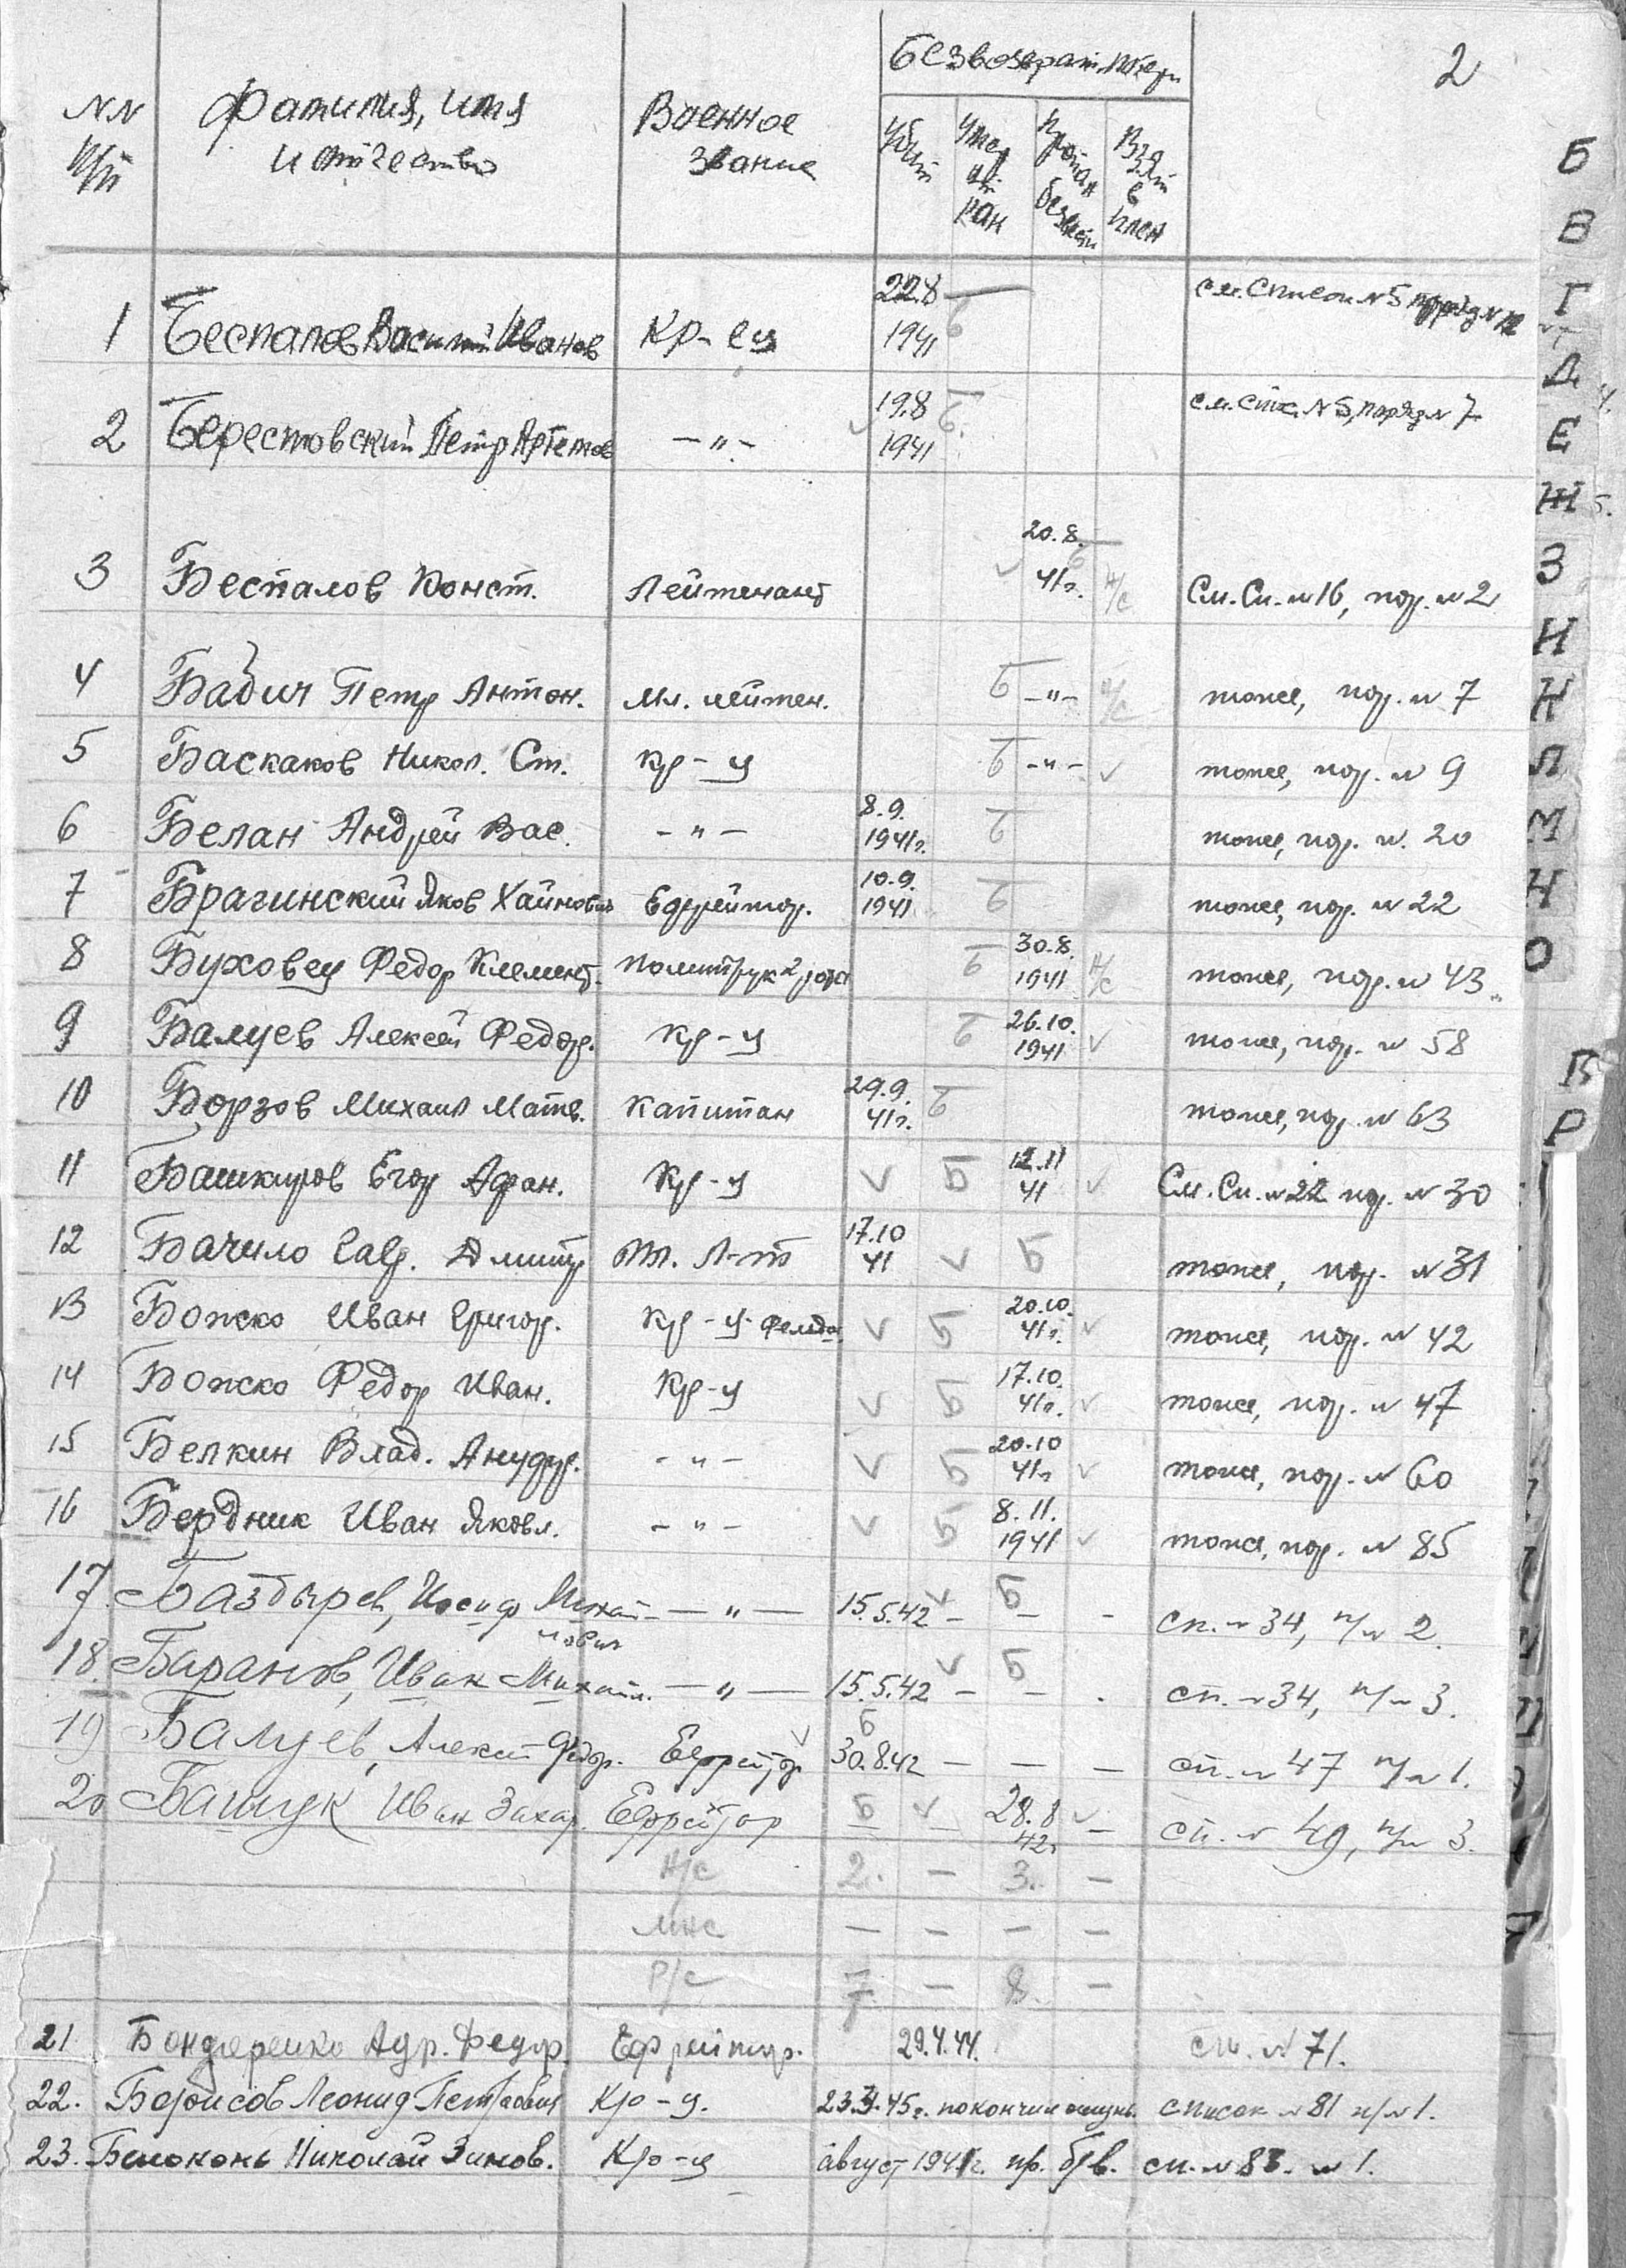 2
NN п/п Фамилия, имя и отчество Военное звание Безвозврат. потери
Убит Умер от ран Пропал безвест Взят в плен
1 Беспалов Василий Иванов Кр-ец 22.8 1941 Б см. список №5 поряд №12
2 Берестовский Петр Артемов — " — 19.8 1941 Б см. спис. №5, поряд № 7
3 Беспалов Конст. Лейтенант 20.8. 41г. Б Н/с См. Сп. №16, пор. №2
4 Бабич Петр Антон. Мл. лейтен. Б — " — Н/с тоже, пор. № 7
5 Баскаков Никол. Ст. Кр-ц Б — " — тоже, пор. № 9
6 Белан Андрей Вас. — " — 8.9. 1941г. Б тоже, пор. №. 20
7 Брагинский Яков Хаймович Ефрейтор. 10.9. 1941 Б тоже, пор. № 22
8 Буховец Федор Клемент. Политрук 2 роты Б 30.8. 1941 Н/с тоже, пор. № 43
9 Балуев Алексей Федор. Кр-ц Б 26.10. 1941 тоже, пор. № 58
10 Борзов Михаил Матв. Капитан 29.9. 41г. Б тоже, пор. № 63
11 Башкиров Егор Афан. Кр-ц Б 12.11 41 См. Сп. №22 пор. № 30
12 Бачило Гавр. Дмитр Мл. Л-т 17.10 41 Б тоже, пор. №31
13 Божко Иван Григор. Кр-ц Б 20.10. 41г. тоже, пор. № 42
14 Божко Федор Иван. Кр-ц Б 17.10. 41г. тоже, пор. № 47
15 Белкин Влад. — " — Б 20.10 41г тоже, пор. № 60
16 Бердник Иван Яковл. — " — Б 8.11. 1941 тоже, пор. № 85
17. Баздырев, Иосиф Михайлович — " — 15.5.42 Б – – - сп. № 34, п/№ 2.
18. Баранов, Иван Михайл. — " — 15.5.42 Б – – - сп. №34, п/№ 3.
19 Балуев, Алексей Федр. Ефрейтор Б 30.8.42 — — — сп. № 47 п/№ 1.
20 Башук Иван Захар. Ефрейтор Б – 28.8 42г – сп. № 49, п/№ 3.
Н/с 2. — 3. —
МНС — — — —
Р/с 7 — 8. —
21 Бондаренко Адр. Федор. Ефрейтор. 29.4.44. сп. № 71.
22. Борисов Леонид Петрович Кр-ц. 23.3.45г. список №81 п/№1.
23. Белоконь Николай Зинов. Кр-ц август 1941г. пр. б/в. сп. №83. №1.
Б
В
Г
Д
Е
Ж
З
И
К
Л
М
Н
О
П
Р